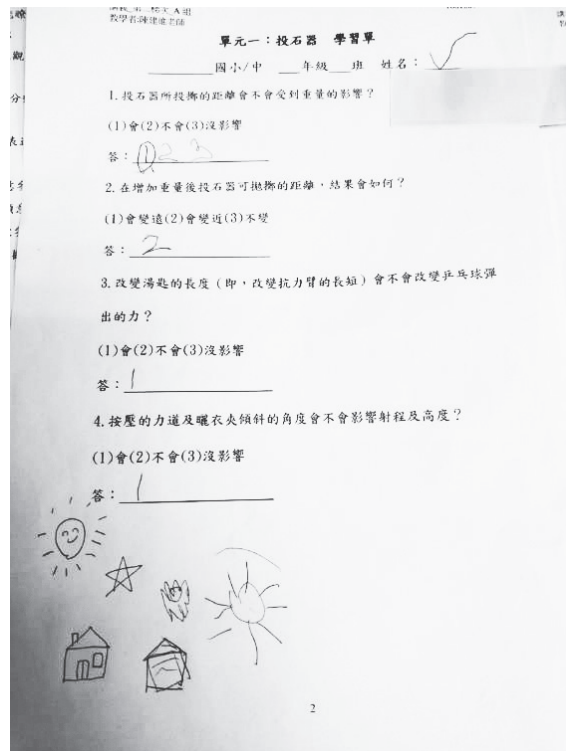 教學者:陳建遠老師
單元一:投石器 學習單
______國小/中 ___年級___班 姓名:
1.投石器所投擲的距離會不會受到重量的影響?
(1)會(2)不會(3)沒影響
答:① 2 3
2.在增加重量後投石器可拋擲的距離,結果會如何?
(1)會變遠(2)會變近(3)不變
答:2
3.改變湯匙的長度(即,改變抗力臂的長短)會不會改變乒乓球彈
出的力?
(1)會(2)不會(3)沒影響
答:1
4.按壓的力道及曬衣夾傾斜的角度會不會影響射程及高度?
(1)會(2)不會(3)沒影響
答:1
2